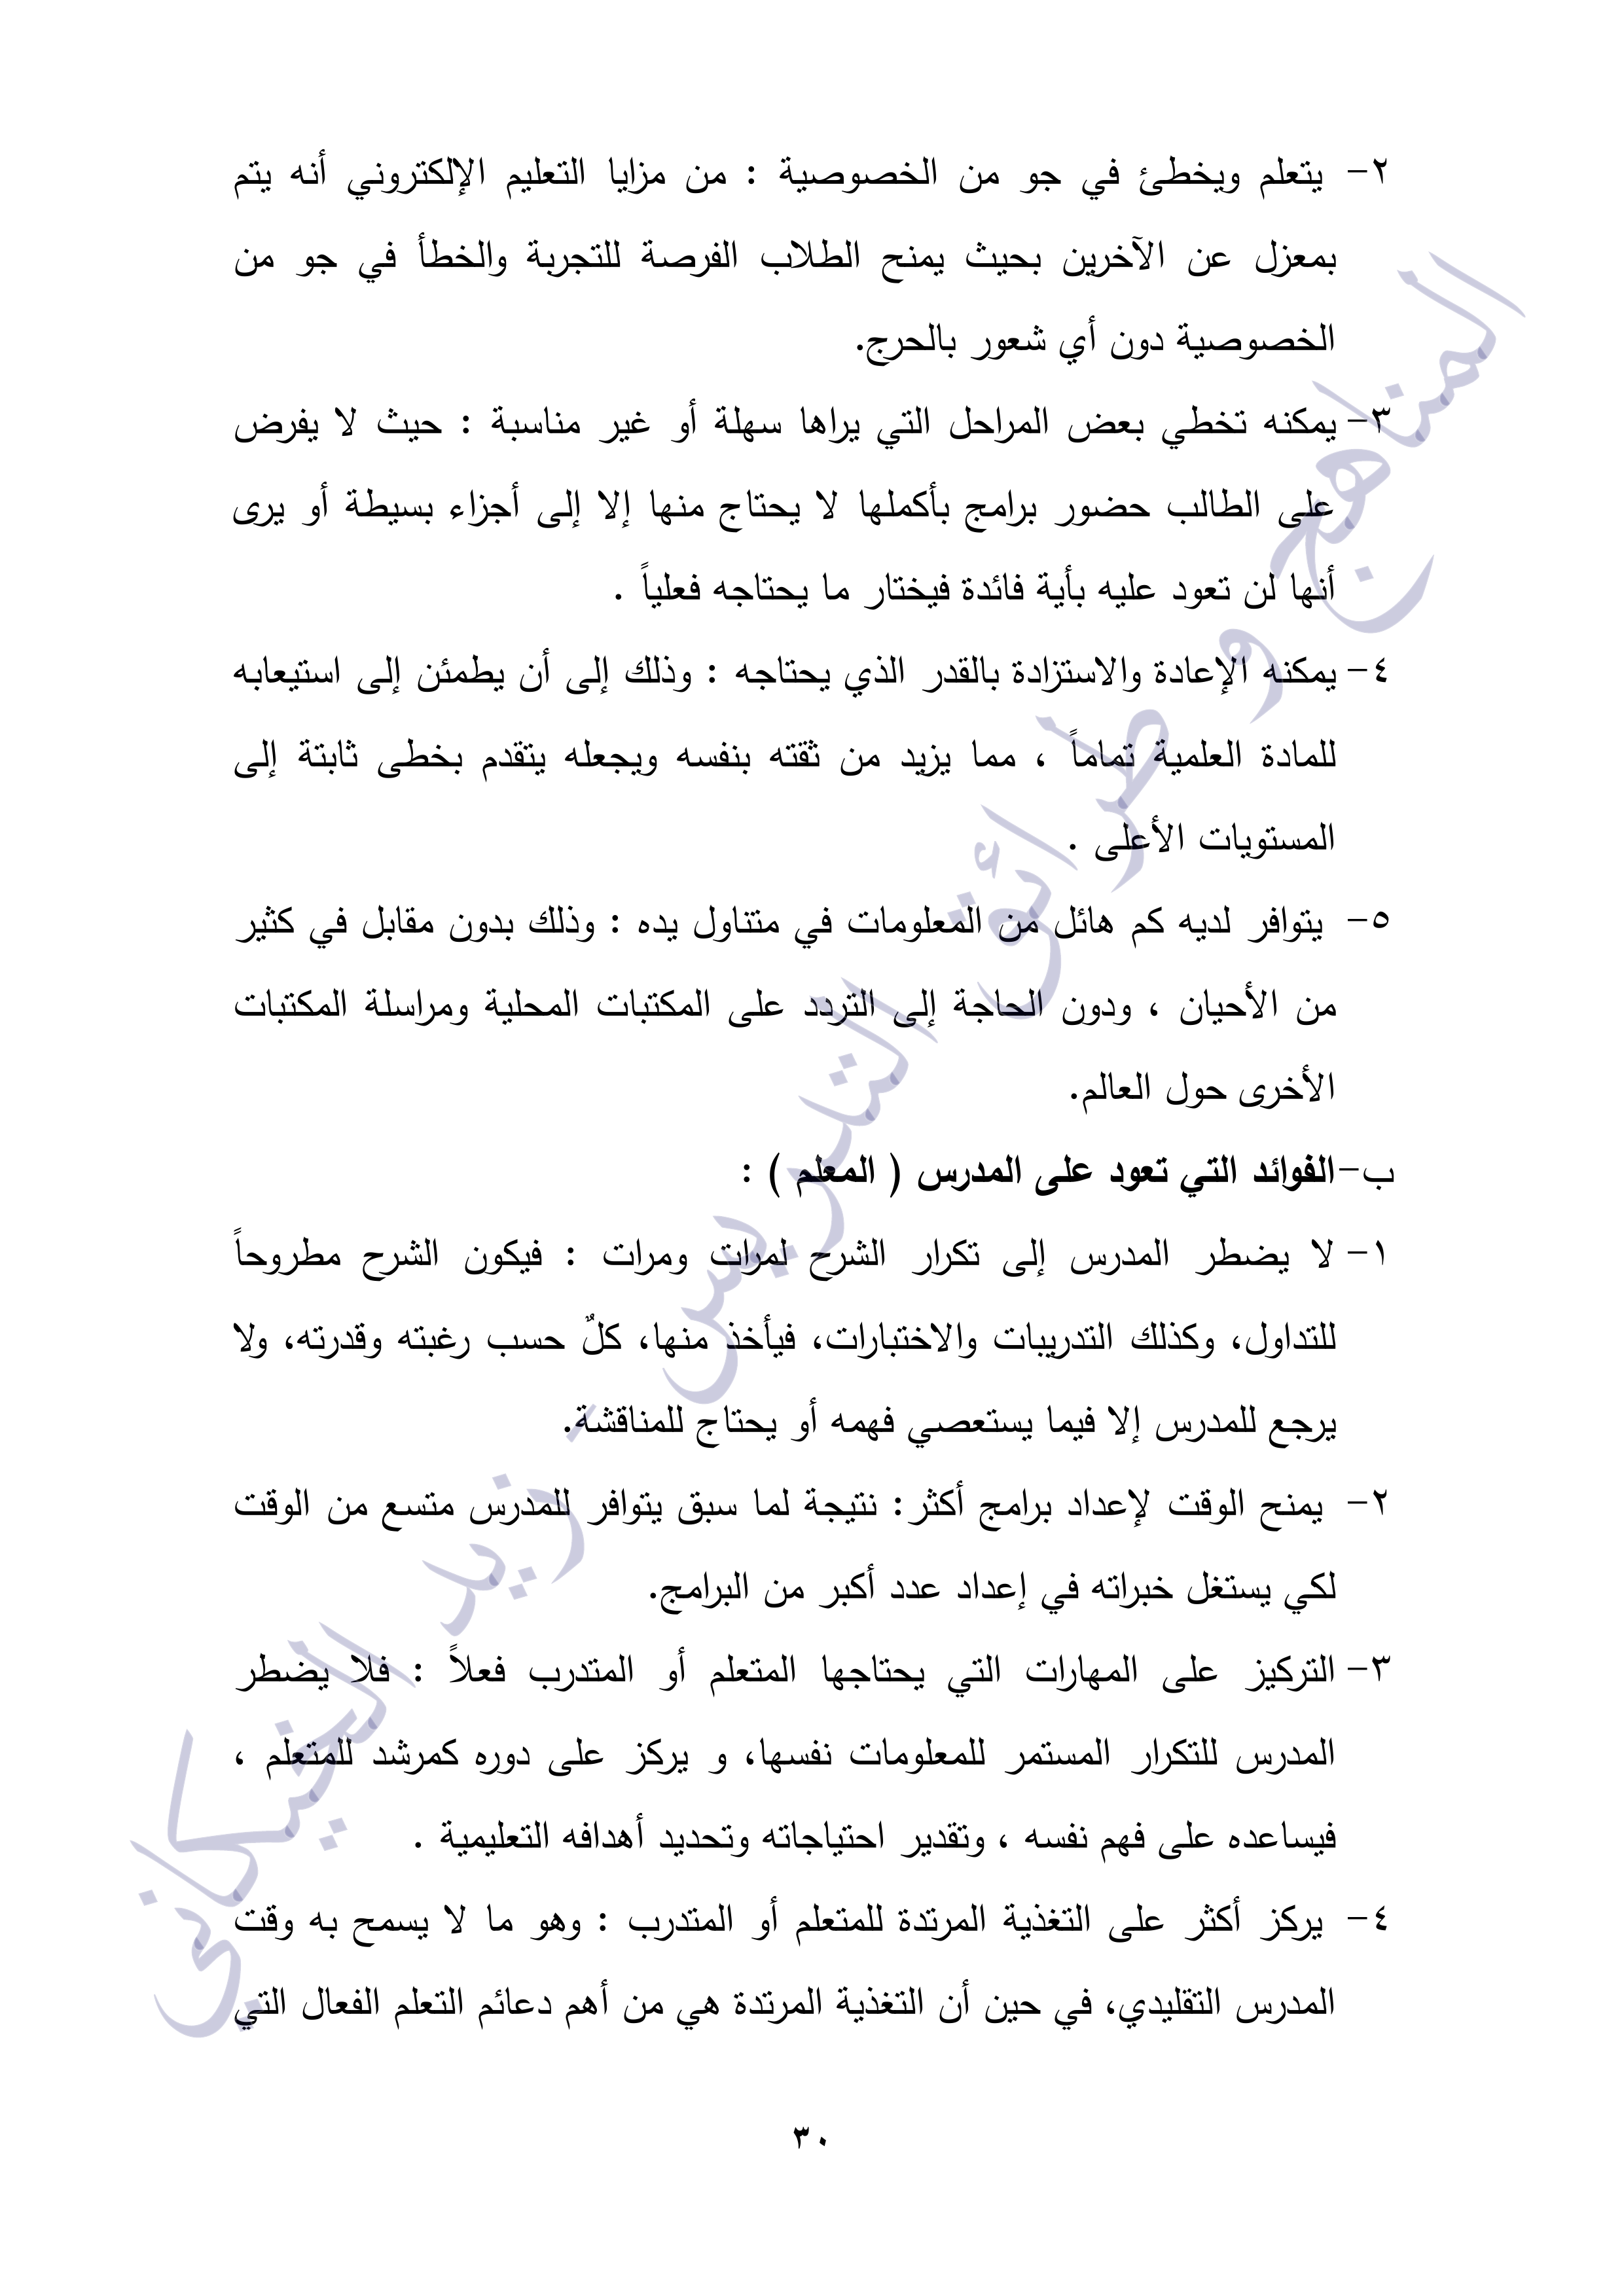 ٢- يتعلم ويخطئ في جو من الخصوصية : من مزايا التعليم الإلكتروني أنه يتم
بمعزل عن الآخرين بحيث يمنح الطلاب الفرصة للتجربة والخطأ في جو من
الخصوصية دون أي شعور بالحرج.
٣- يمكنه تخطي بعض المراحل التي يراها سهلة أو غير مناسبة : حيث لا يفرض
على الطالب حضور برامج بأكملها لا يحتاج منها إلا إلى أجزاء بسيطة أو يرى
أنها لن تعود عليه بأية فائدة فيختار ما يحتاجه فعلياً .
٤- يمكنه الإعادة والاستزادة بالقدر الذي يحتاجه : وذلك إلى أن يطمئن إلى استيعابه
للمادة العلمية تماماً ، مما يزيد من ثقته بنفسه ويجعله يتقدم بخطى ثابتة إلى
المستويات الأعلى .
٥- يتوافر لديه كم هائل من المعلومات في متناول يده : وذلك بدون مقابل في كثير
من الأحيان ، ودون الحاجة إلى التردد على المكتبات المحلية ومراسلة المكتبات
الأخرى حول العالم.
ب-الفوائد التي تعود على المدرس ( المعلم ) :
١- لا يضطر المدرس إلى تكرار الشرح لمرات ومرات : فيكون الشرح مطروحاً
للتداول، وكذلك التدريبات والاختبارات، فيأخذ منها، كلٌ حسب رغبته وقدرته، ولا
يرجع للمدرس إلا فيما يستعصي فهمه أو يحتاج للمناقشة.
٢- يمنح الوقت لإعداد برامج أكثر: نتيجة لما سبق يتوافر للمدرس متسع من الوقت
لكي يستغل خبراته في إعداد عدد أكبر من البرامج.
٣- التركيز على المهارات التي يحتاجها المتعلم أو المتدرب فعلاً : فلا يضطر
المدرس للتكرار المستمر للمعلومات نفسها، و يركز على دوره كمرشد للمتعلم ،
فيساعده على فهم نفسه ، وتقدير احتياجاته وتحديد أهدافه التعليمية .
٤- يركز أكثر على التغذية المرتدة للمتعلم أو المتدرب : وهو ما لا يسمح به وقت
المدرس التقليدي، في حين أن التغذية المرتدة هي من أهم دعائم التعلم الفعال التي
٣٠
المناهج و طرائق التدريس - زيد الخيكاني